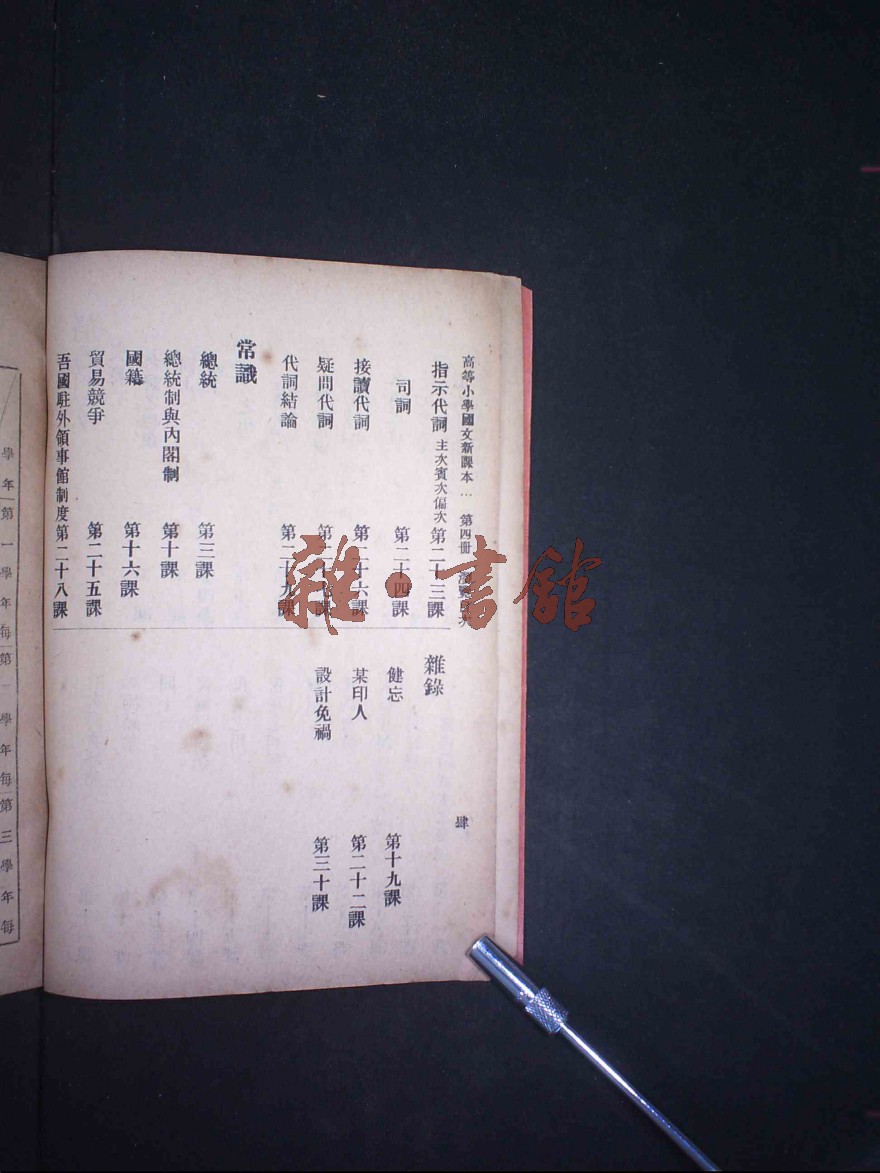 高等小學國文新課本… 第四冊 肆
指示代詞 主次賓次偏次 第二十三課
司詞 第二十四課
接讀代詞 第二十六課
疑問代詞 第二十七課
代詞結論 第二十九課
常識
總統 第三課
總統制與內閣制 第十課
國籍 第十六課
貿易競爭 第二十五課
吾國駐外領事館制度 第二十八課
雜錄
健忘 第十九課
某印人 第二十二課
設計免禍 第三十課
學年 第一學年每 第 學年每 第三學年每
雜·書館